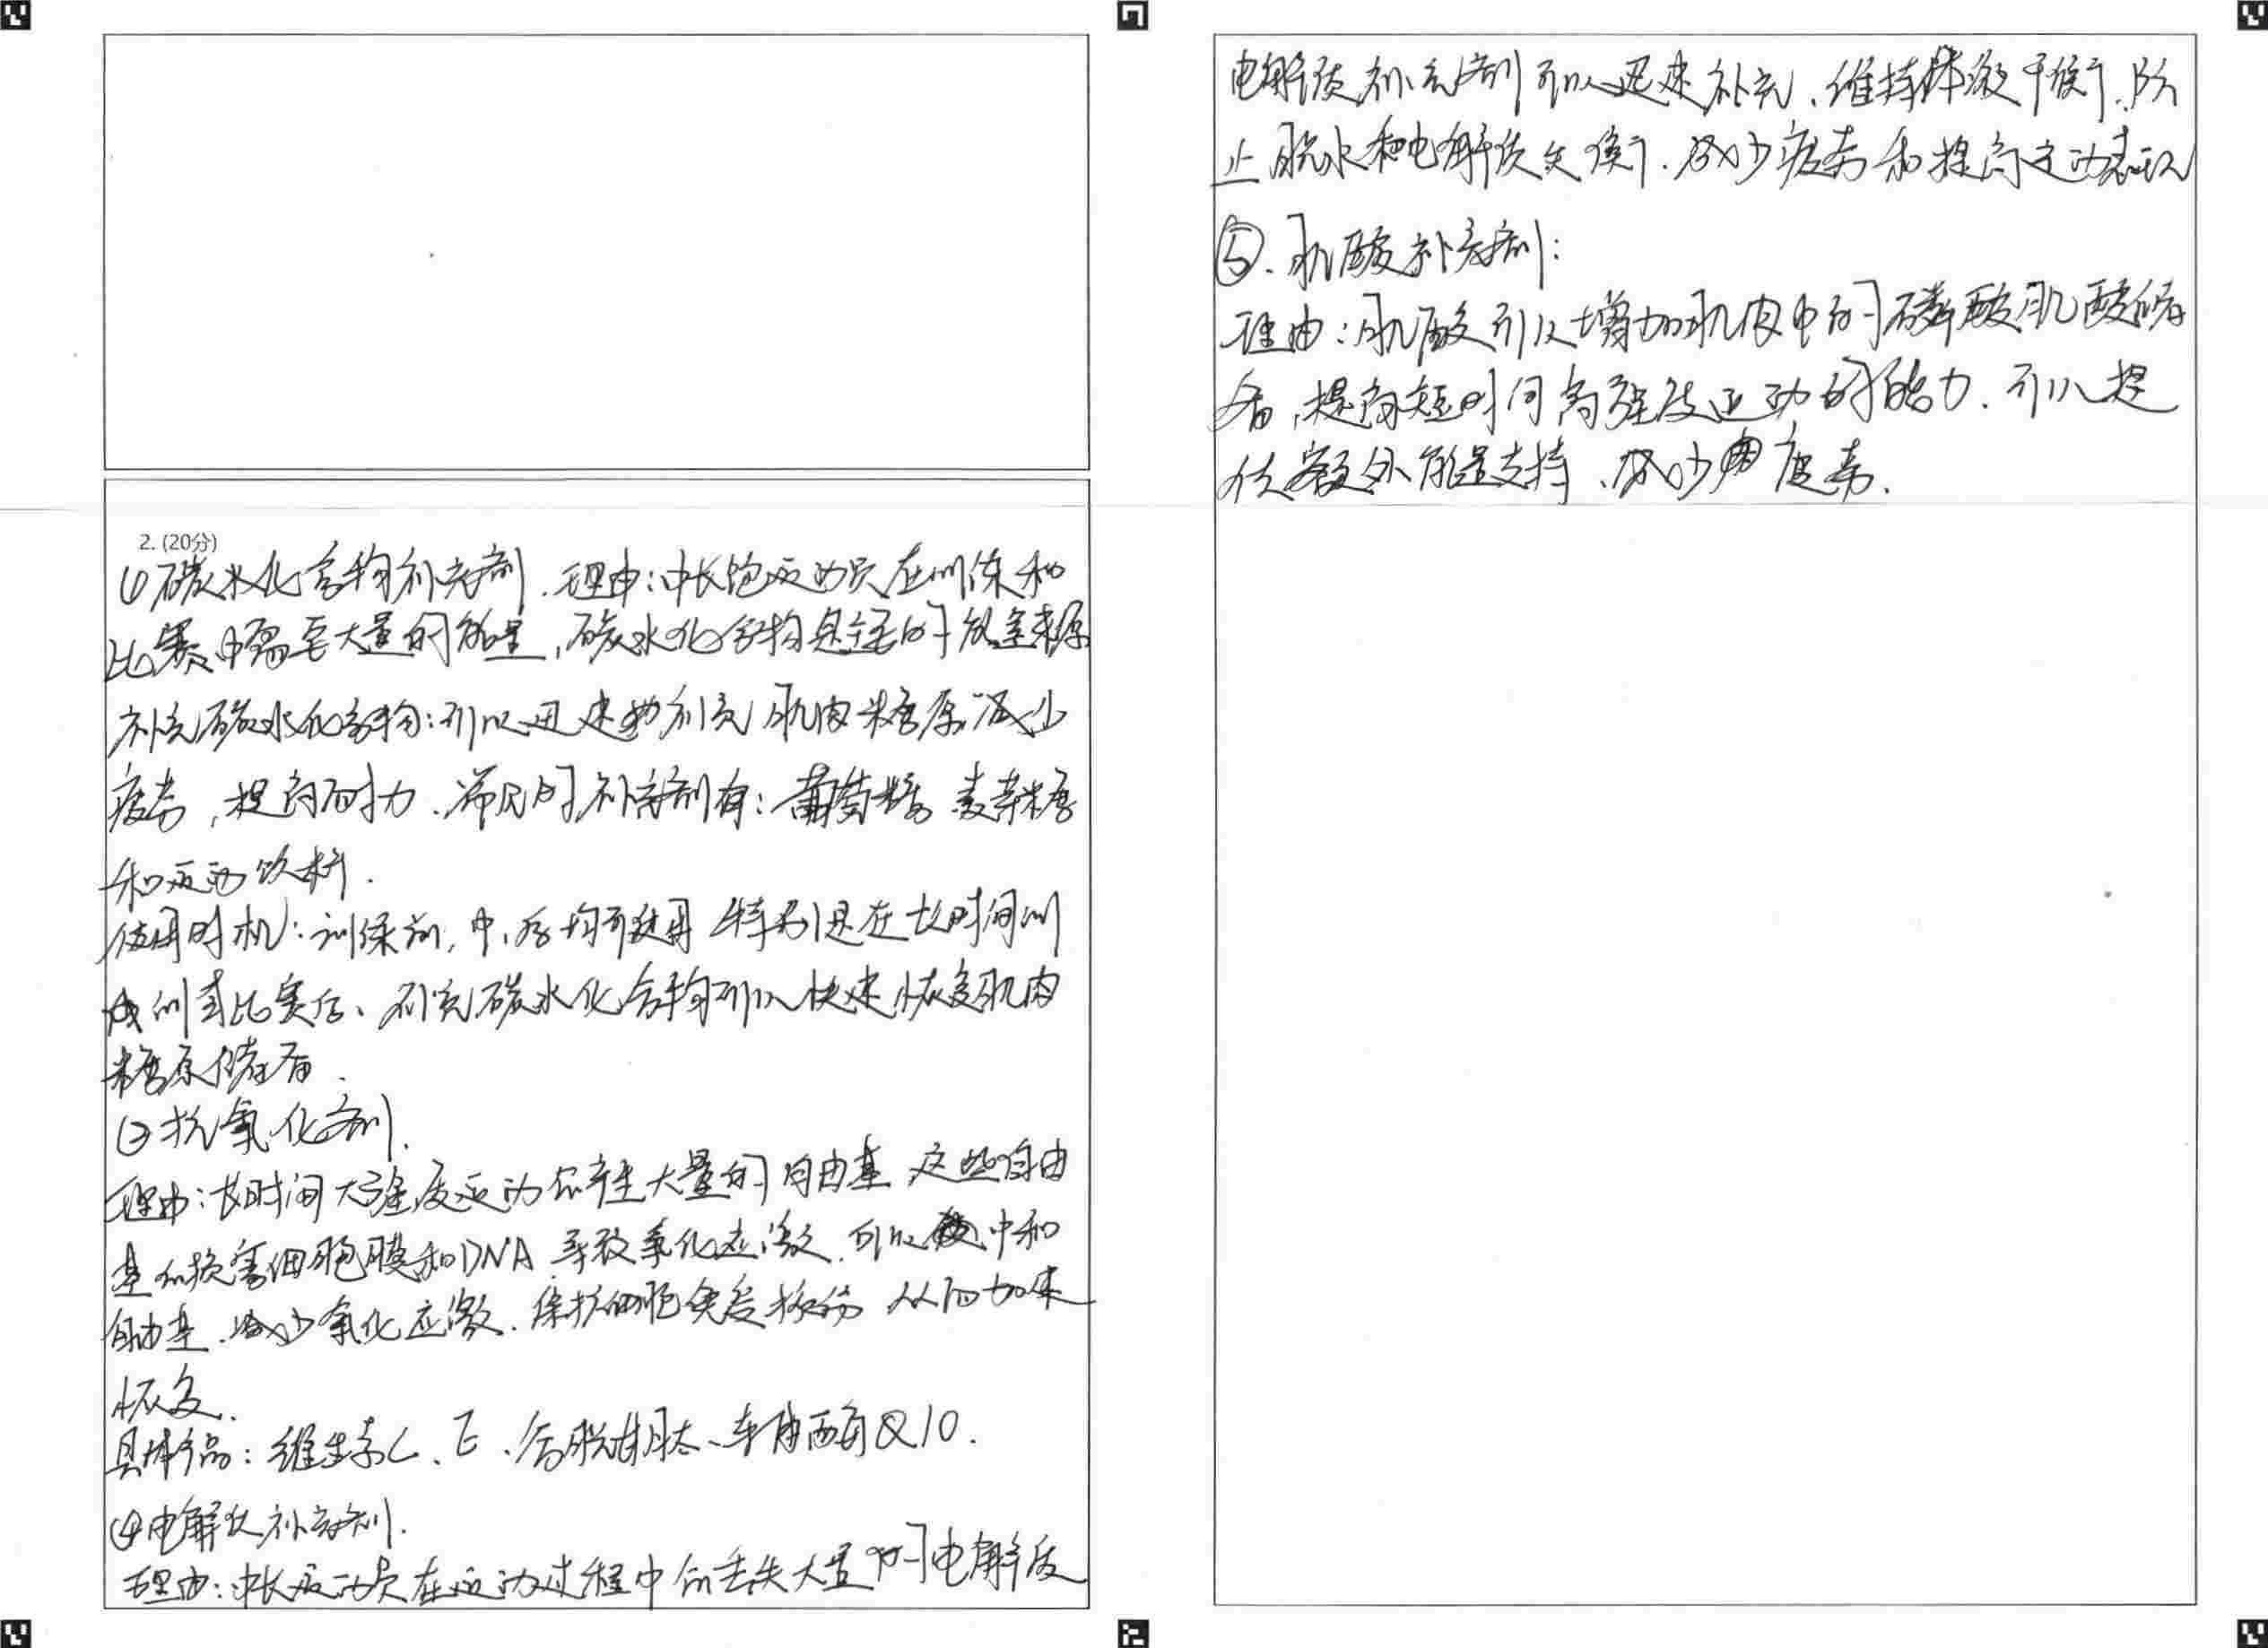 2. (20分)
①碳水化合物补充剂.理由:中长跑运动员在训练和
比赛中需要大量的能量,碳水化合物是主要的能量来源
补充碳水化合物:可以迅速补充肌肉糖原,减少
疲劳,提高耐力.常见的补充剂有:葡萄糖.麦芽糖
和运动饮料.
使用时机:训练前,中,后均可使用 特别是在长时间训
训或比赛后、补充碳水化合物可以快速恢复肌肉
糖原储备.
②抗氧化剂.
理由:长时间大强度运动会产生大量的自由基,这些自由
基会损害细胞膜和DNA,导致氧化应激.可以中和
自由基.减少氧化应激.保护细胞免受损伤 从而加速
恢复.
具体产品:维生素C、E、谷胱甘肽、辅酶Q10.
④电解质补充剂.
理由:中长运动员在运动过程中会丢失大量的电解质
电解质补充剂可以迅速补充、维持体液平衡,防
止脱水和电解质失衡.减少疲劳和提高运动表现
⑤.肌酸补充剂:
理由:肌酸可以增加肌肉中的磷酸肌酸储
备,提高短时间高强度运动的能力.可以提
供额外能量支持、减少疲劳.